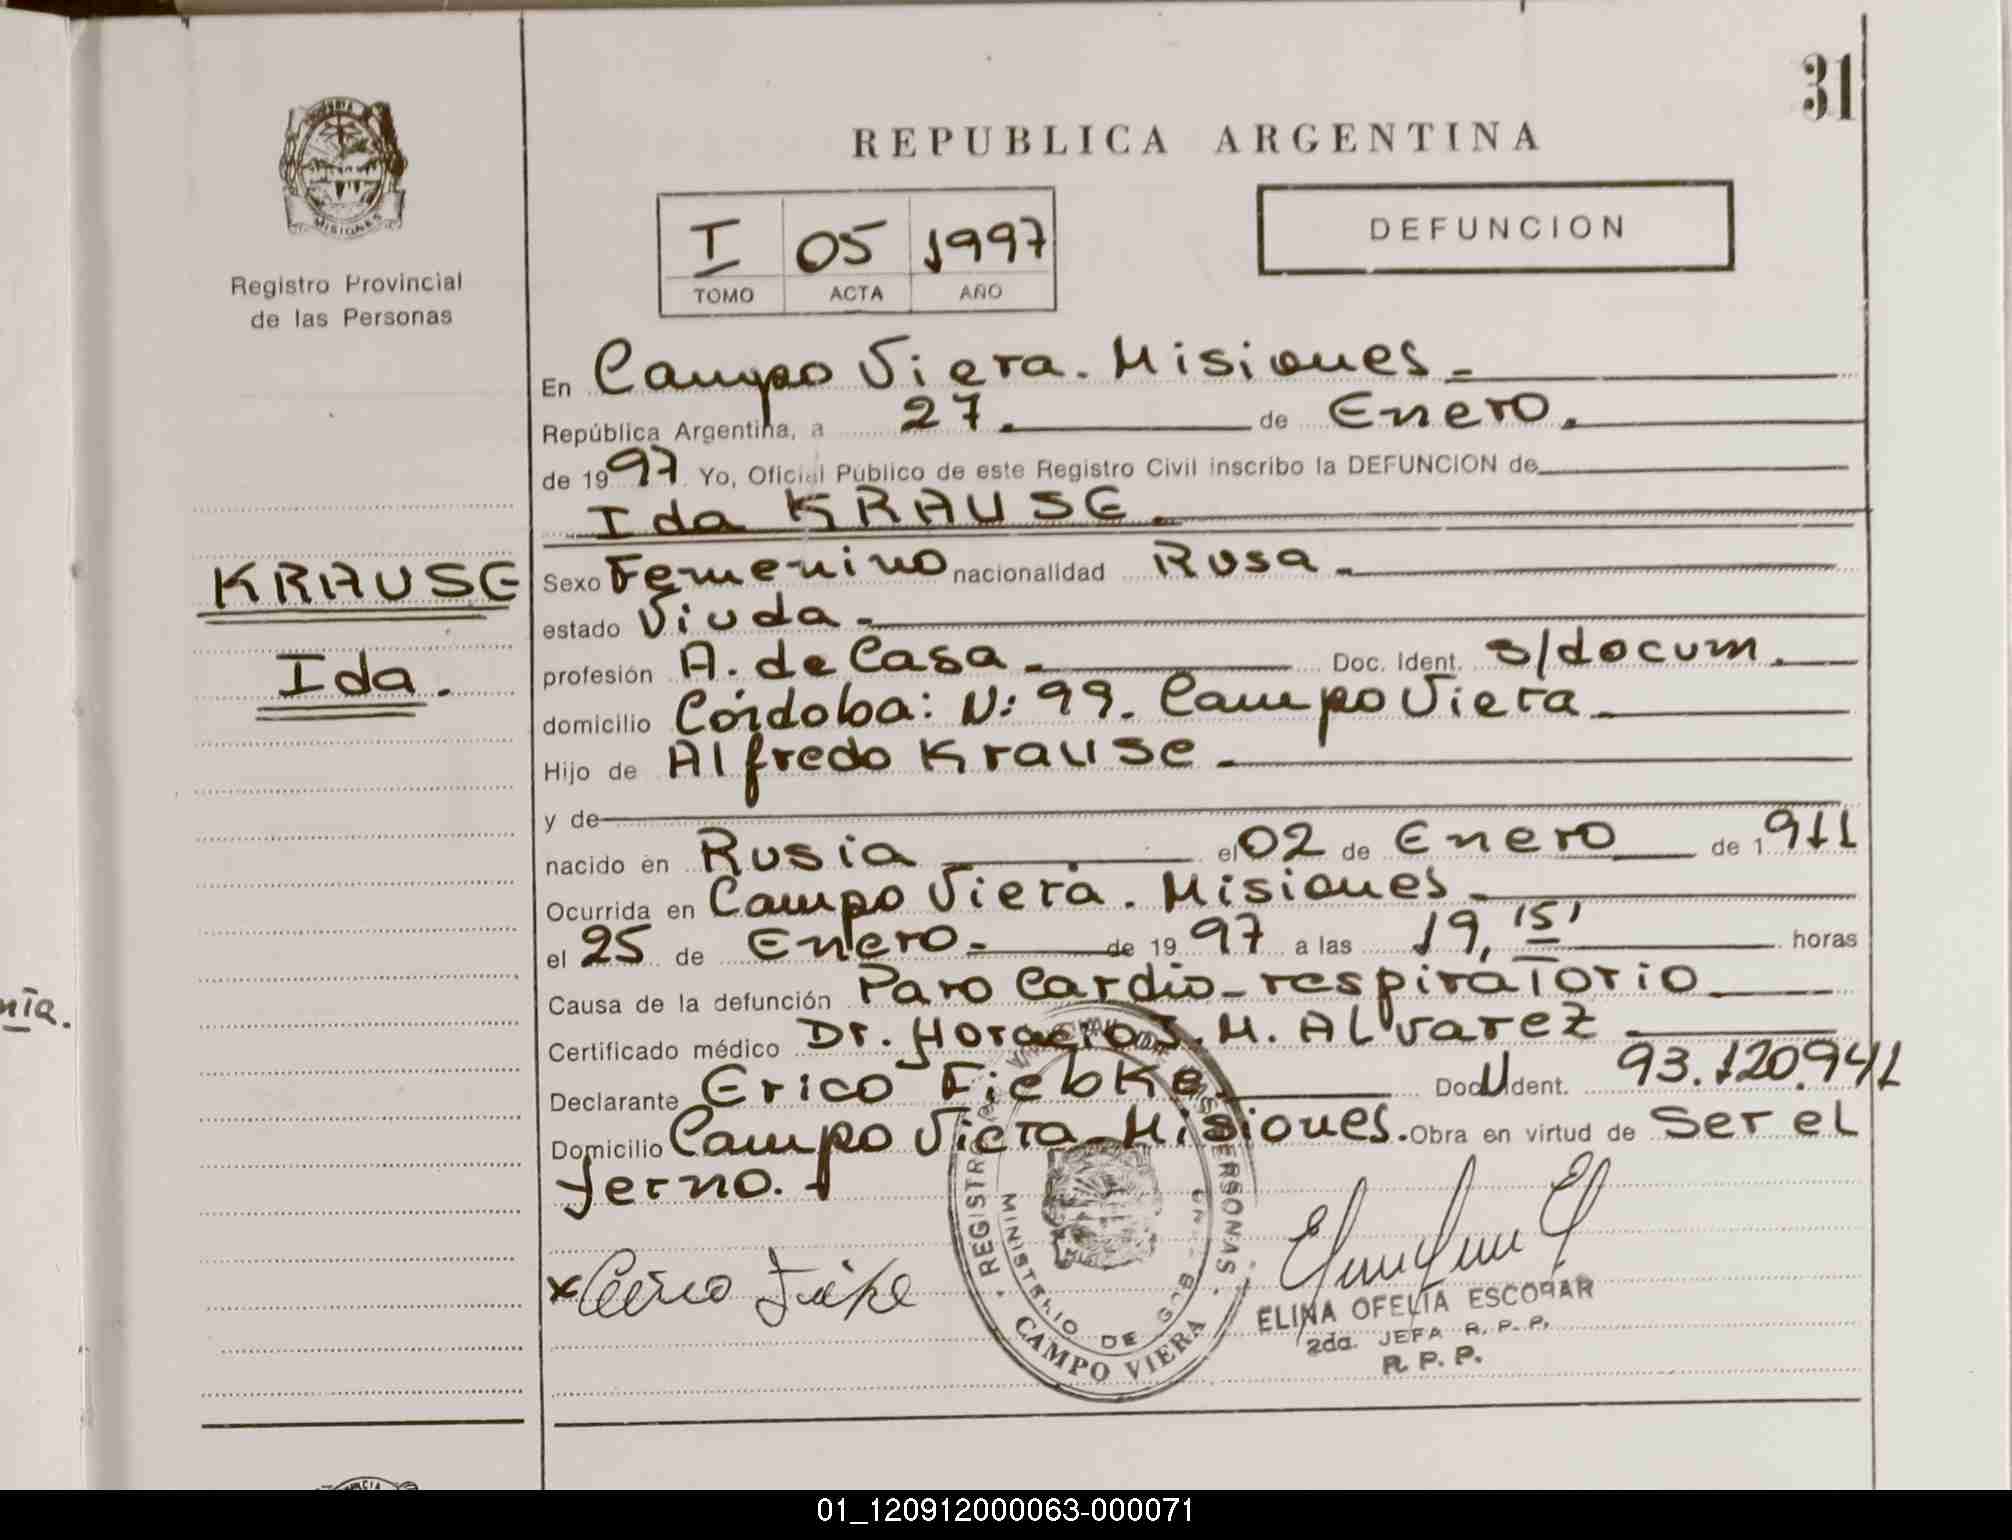 31
MISIONES
Registro Provincial
de las Personas
KRAUSE
Ida.
REPUBLICA ARGENTINA
I 05 1997
TOMO ACTA AÑO
DEFUNCION
En Campo Viera. Misiones.
República Argentina, a 27. de Enero.
de 1997 Yo, Oficial Público de este Registro Civil inscribo la DEFUNCION de
Ida KRAUSE.
Sexo Femenino nacionalidad Rusa.
estado Viuda.
profesión A. de Casa. Doc. Ident. s/docum.
domicilio Córdoba: N: 99. Campo Viera
Hijo de Alfredo Krause
y de
nacido en Rusia el 02 de Enero de 1911
Ocurrida en Campo Viera. Misiones
el 25 de Enero. de 1997 a las 19,15' horas
Causa de la defunción Paro Cardio-respiratorio
Certificado médico Dr. Horacio J. M. Alvarez
Declarante Erico Fiebke Doc. Ident. 93.120.941
Domicilio Campo Viera Misiones. Obra en virtud de Ser el
Yerno.
REGISTRO PERSONAS
MINISTERIO DE GOB
CAMPO VIERA
ELINA OFELIA ESCOBAR
2da. JEFA R. P. P.
R. P. P.
01_120912000063-000071